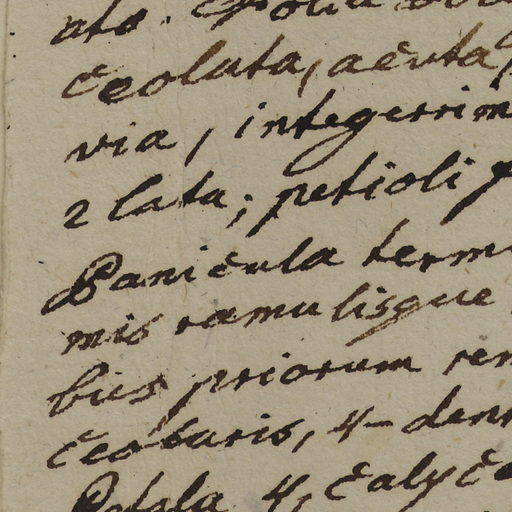 ato. Folia
ceolata, acuta,
via, integerrim
2 lata; petioli p
Panicula termi
mis ramulisque
bies priorum rem
ceolaris, 4-den
Petala 4, calyce